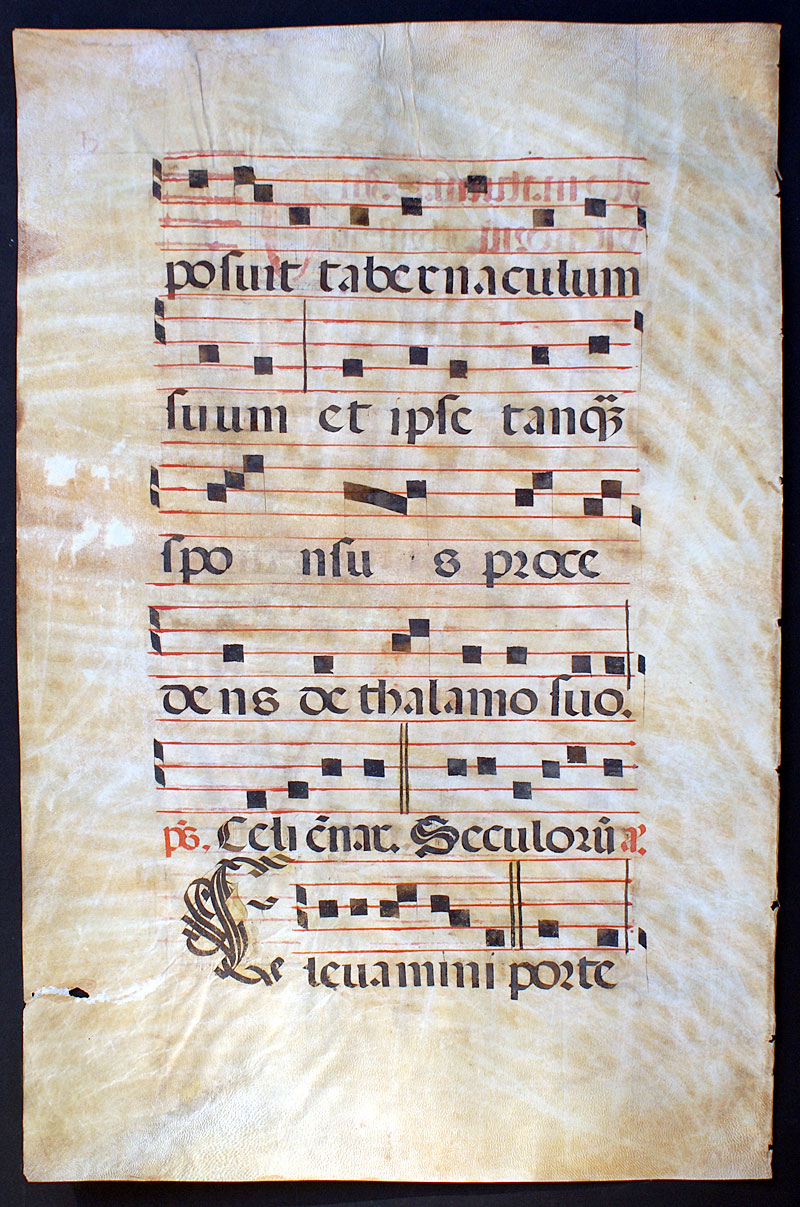 posuit tabernaculum
suum et ipse tanq̃ȝ
spo nsu s proce
dens de thalamo suo.
ps̃. Celi ẽnat. Seculorũ a.
Eleuamini porte